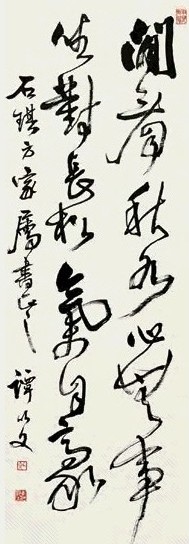 閒看秋水心無事
坐對長松氣自豪
石鏻方家屬書正之
譚以文